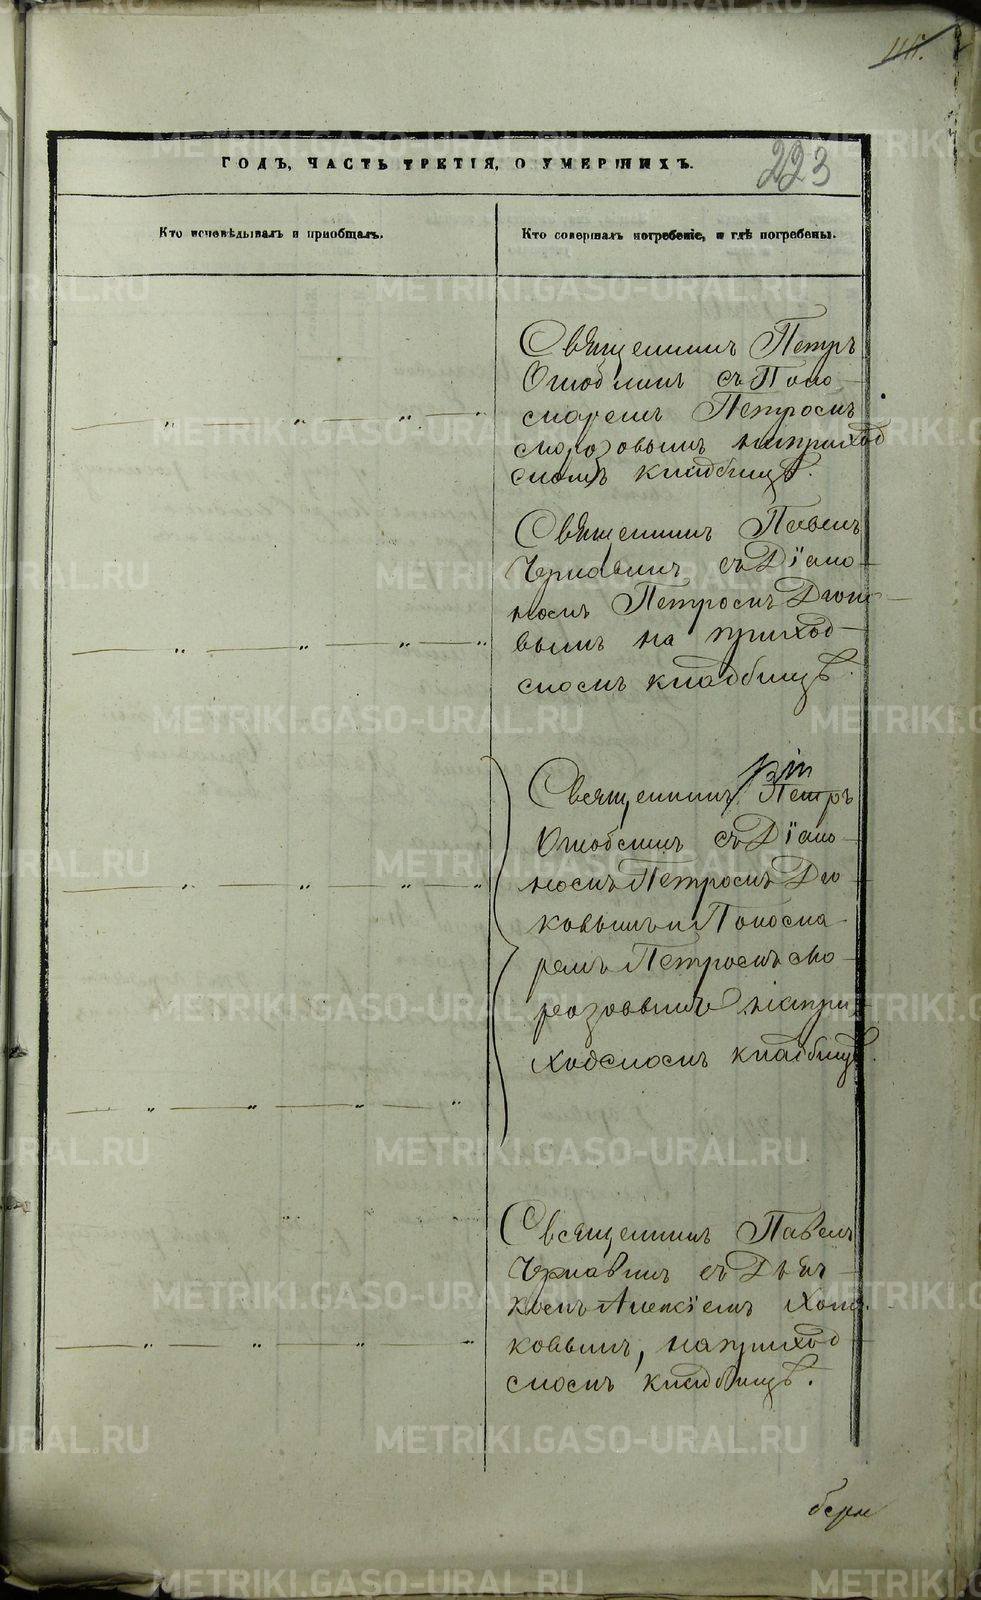 223
ГОДЪ, ЧАСТЬ ТРЕТІЯ, О УМЕРШИХЪ.
Кто исповѣдывалъ и пріобщалъ.
Кто совершалъ погребеніе, и гдѣ погребены.
Священникъ Петръ
съ Поно-
маремъ Петромъ
Морозовымъ на приход
скомъ кладбищѣ.
Священникъ Павелъ
Чернавинъ съ Діако-
номъ Петромъ Дюко
вымъ на приход-
скомъ кладбищѣ.
Священникъ Петръ
съ Діако-
номъ Петромъ Дю-
ковымъ и Понома-
ремъ Петромъ Мо-
розовымъ на при
ходскомъ кладбищѣ.
Священникъ Павелъ
Чернавинъ съ Дьяч-
комъ Алексіемъ
ковымъ, на приход
скомъ кладбищѣ.
METRIKI.GASO-URAL.RU